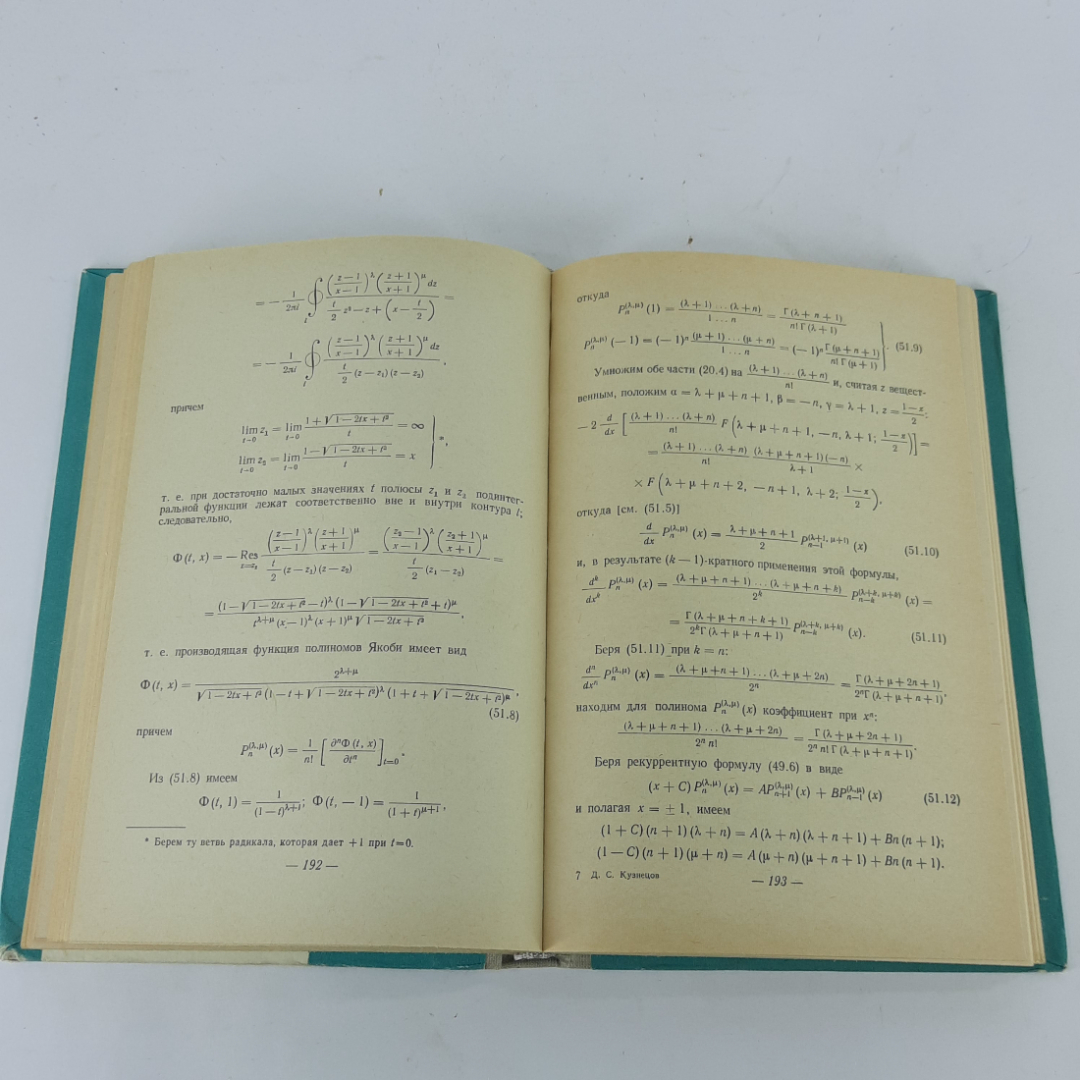 = − 1/2πi ∮_l ((z−1)/(x−1))^λ ((z+1)/(x+1))^μ dz / (t/2 z² − z + (x − t/2)) =
= − 1/2πi ∮_l ((z−1)/(x−1))^λ ((z+1)/(x+1))^μ dz / (t/2 (z−z₁)(z−z₂)),
причем
lim_{t→0} z₁ = lim_{t→0} (1+√(1−2tx+t²))/t = ∞
lim_{t→0} z₂ = lim_{t→0} (1−√(1−2tx+t²))/t = x *,
т. е. при достаточно малых значениях t полюсы z₁ и z₂ подинтег-
ральной функции лежат соответственно вне и внутри контура l;
следовательно,
Φ(t, x) = − Res_{z=z₂} ((z−1)/(x−1))^λ ((z+1)/(x+1))^μ / (t/2 (z−z₁)(z−z₂)) = ((z₂−1)/(x−1))^λ ((z₂+1)/(x+1))^μ / (t/2 (z₁−z₂)) =
= (1−√(1−2tx+t²)−t)^λ (1−√(1−2tx+t²)+t)^μ / (t^{λ+μ} (x−1)^λ (x+1)^μ √(1−2tx+t²)),
т. е. производящая функция полиномов Якоби имеет вид
Φ(t, x) = 2^{λ+μ} / (√(1−2tx+t²) (1−t+√(1−2tx+t²))^λ (1+t+√(1−2tx+t²))^μ),
(51.8)
причем
P_n^{(λ,μ)}(x) = 1/n! [∂ⁿΦ(t, x)/∂tⁿ]_{t=0}.
Из (51.8) имеем
Φ(t, 1) = 1/(1−t)^{λ+1}; Φ(t, −1) = 1/(1+t)^{μ+1},
* Берем ту ветвь радикала, которая дает +1 при t=0.
— 192 —
откуда
P_n^{(λ,μ)}(1) = (λ+1)...(λ+n)/(1...n) = Γ(λ+n+1)/(n! Γ(λ+1))
P_n^{(λ,μ)}(−1) = (−1)ⁿ (μ+1)...(μ+n)/(1...n) = (−1)ⁿ Γ(μ+n+1)/(n! Γ(μ+1)) . (51.9)
Умножим обе части (20.4) на (λ+1)...(λ+n)/n! и, считая z вещест-
венным, положим α = λ+μ+n+1, β = −n, γ = λ+1, z = (1−x)/2:
−2 d/dx [(λ+1)...(λ+n)/n! F(λ+μ+n+1, −n, λ+1; (1−x)/2)] =
= (λ+1)...(λ+n)/n! (λ+μ+n+1)(−n)/(λ+1) ×
× F(λ+μ+n+2, −n+1, λ+2; (1−x)/2),
откуда [см. (51.5)]
d/dx P_n^{(λ,μ)}(x) = (λ+μ+n+1)/2 P_{n−1}^{(λ+1, μ+1)}(x) (51.10)
и, в результате (k−1)-кратного применения этой формулы,
d^k/dx^k P_n^{(λ,μ)}(x) = (λ+μ+n+1)...(λ+μ+n+k)/2^k P_{n−k}^{(λ+k, μ+k)}(x) =
= Γ(λ+μ+n+k+1)/(2^k Γ(λ+μ+n+1)) P_{n−k}^{(λ+k, μ+k)}(x). (51.11)
Беря (51.11) при k = n:
dⁿ/dxⁿ P_n^{(λ,μ)}(x) = (λ+μ+n+1)...(λ+μ+2n)/2ⁿ = Γ(λ+μ+2n+1)/(2ⁿ Γ(λ+μ+n+1)),
находим для полинома P_n^{(λ,μ)}(x) коэффициент при xⁿ:
(λ+μ+n+1)...(λ+μ+2n)/(2ⁿ n!) = Γ(λ+μ+2n+1)/(2ⁿ n! Γ(λ+μ+n+1)).
Беря рекуррентную формулу (49.6) в виде
(x+C) P_n^{(λ,μ)}(x) = AP_{n+1}^{(λ,μ)}(x) + BP_{n−1}^{(λ,μ)}(x) (51.12)
и полагая x = ±1, имеем
(1+C)(n+1)(λ+n) = A(λ+n)(λ+n+1) + Bn(n+1);
(1−C)(n+1)(μ+n) = A(μ+n)(μ+n+1) + Bn(n+1).
7 Д. С. Кузнецов
— 193 —